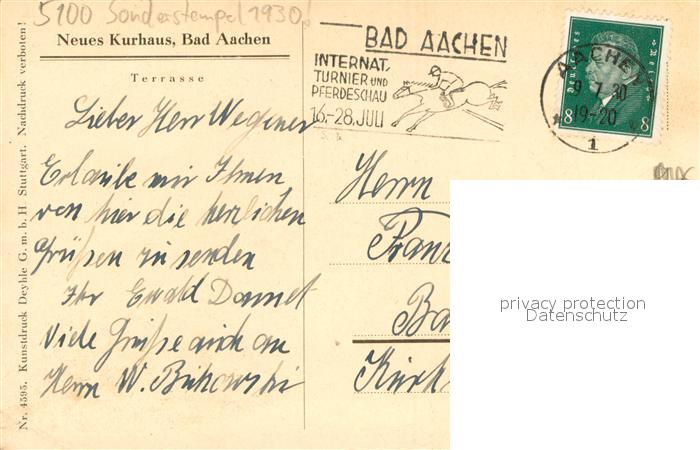 5100 Sonderstempel 1930!
Neues Kurhaus, Bad Aachen
Terrasse
Lieber Herr Wegener
Erlaube mir Ihnen
von hier die herzlichen
Grüßen zu senden
Ihr Ewald
Viele Grüße auch an
Herrn W. Bukowski
Nr. 4595. Kunstdruck Deyhle G. m. b. H. Stuttgart. Nachdruck verboten!
BAD AACHEN
INTERNAT.
TURNIER UND
PFERDESCHAU
16.-28. JULI
AACHEN
9.7.30
19-20
* 1
Deutsches Reich
8 8
Herrn
Franz
Ba
Kürh
privacy protection
Datenschutz